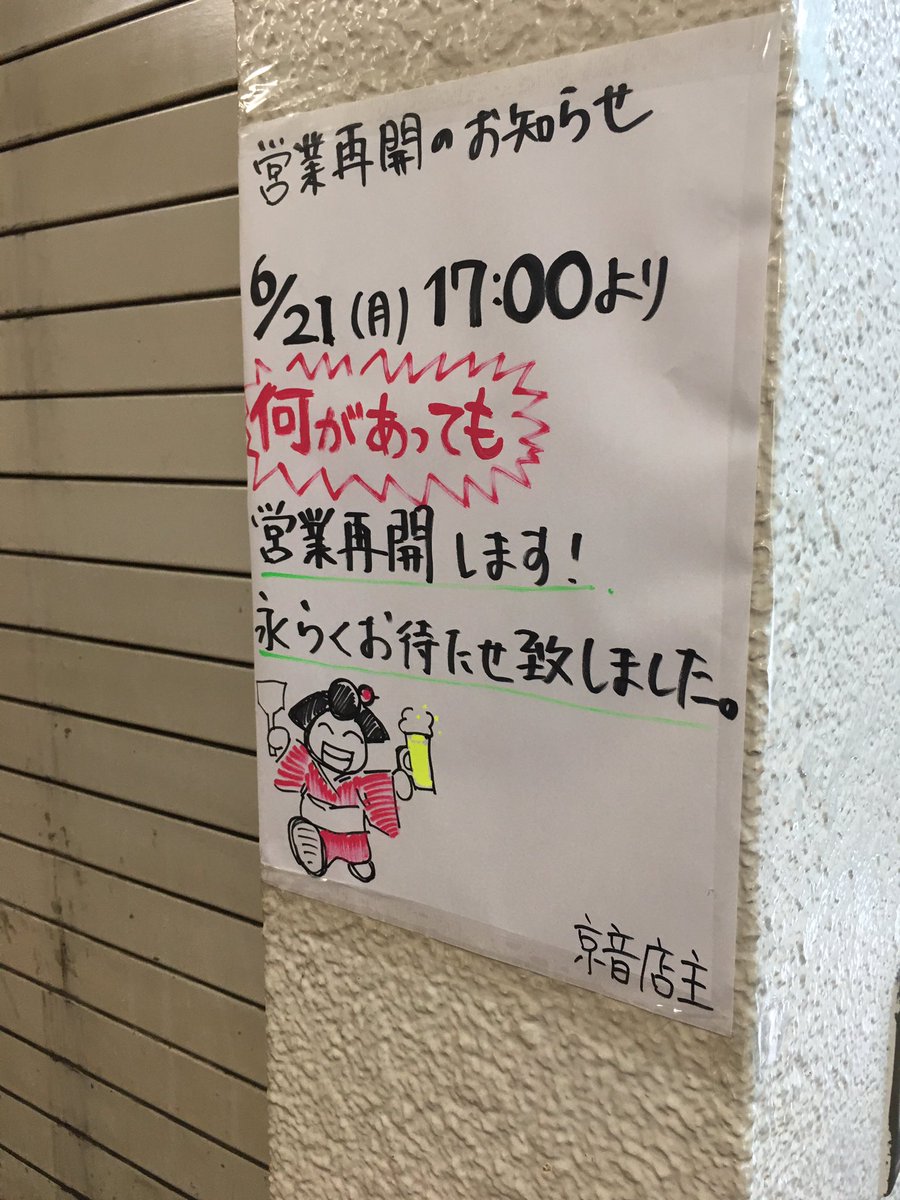 営業再開のお知らせ
6/21(月) 17:00より
何があっても
営業再開します!
永らくお待たせ致しました。
京音店主